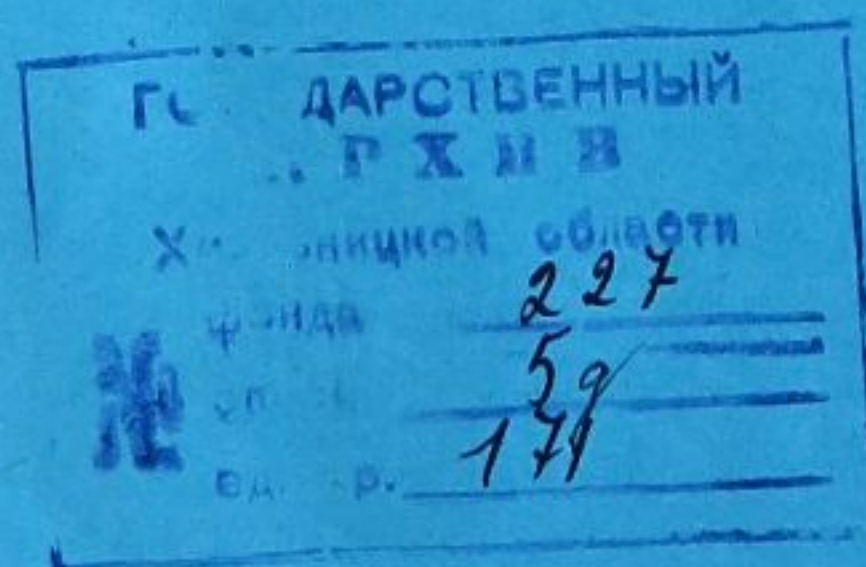 ГОСУДАРСТВЕННЫЙ
АРХИВ
Хмельницкой области
№
фонда 227
описи 5д
ед. хр. 171